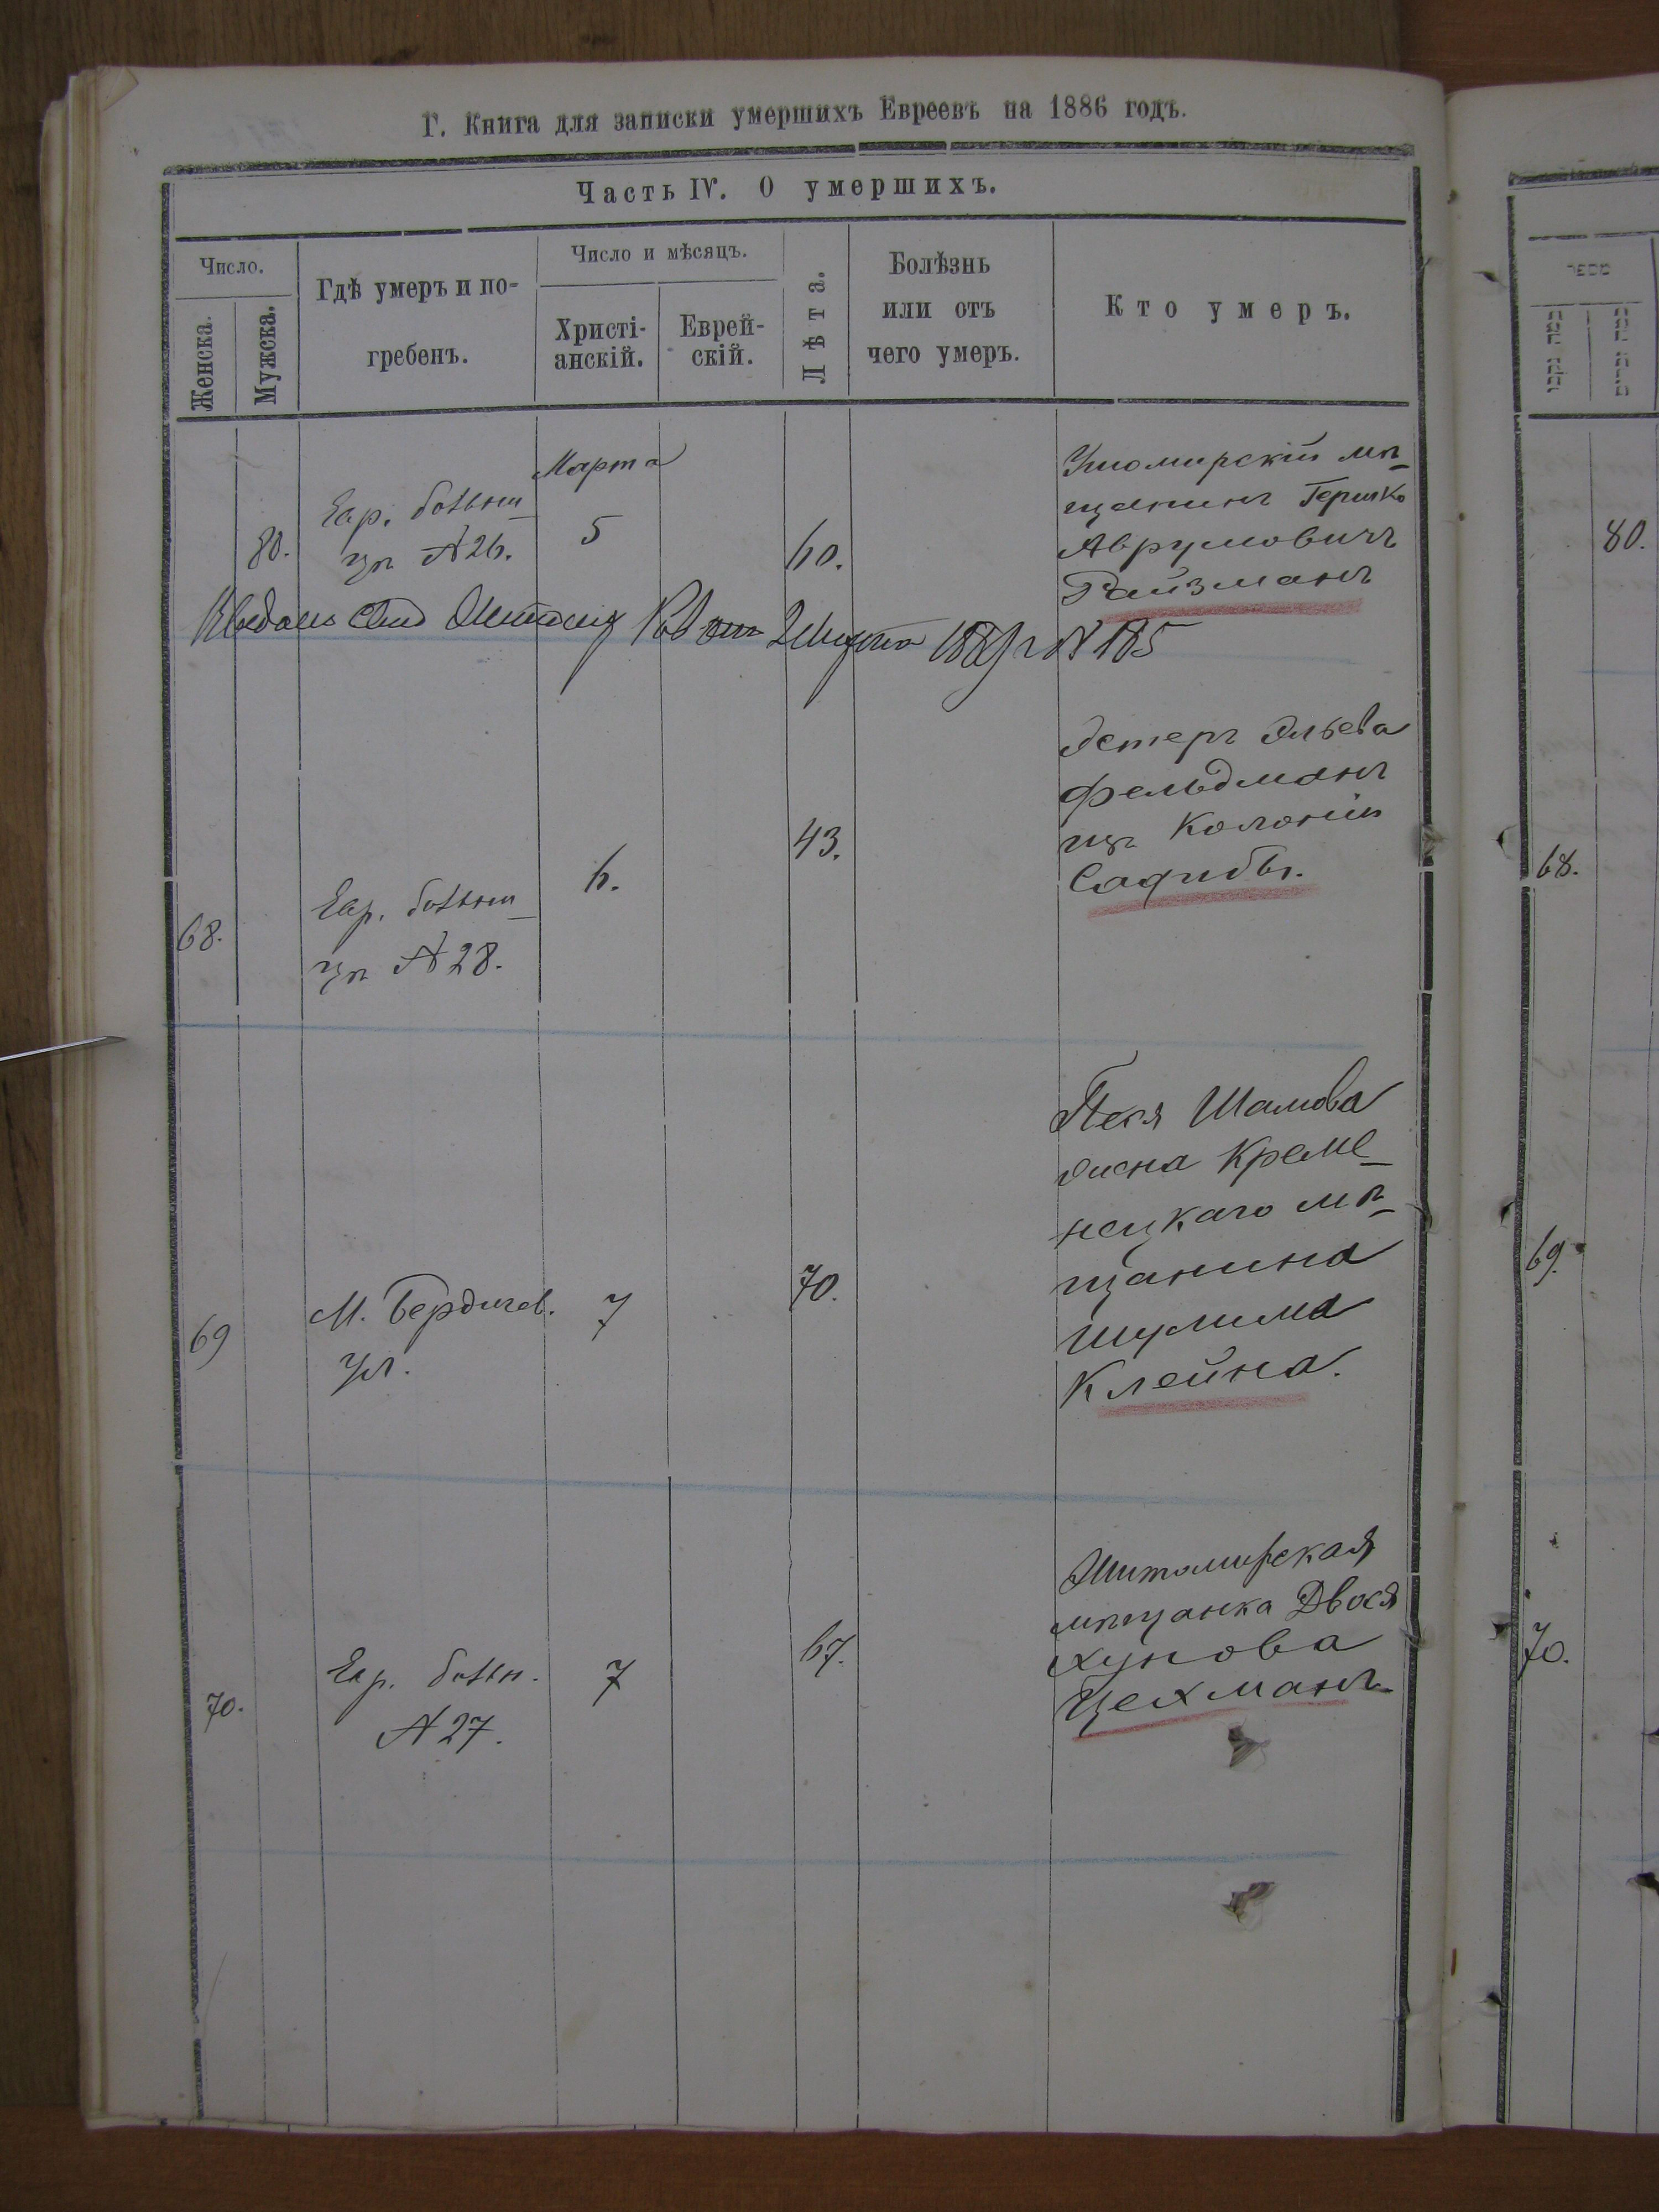 Г. Книга для записки умершихъ Евреевъ на 1886 годъ.
Часть IV. О умершихъ.
Число.
Женска.
Мужска.
Гдѣ умеръ и по-
гребенъ.
Число и мѣсяцъ.
Христі-
анскій.
Еврей-
скій.
Лѣта.
Болѣзнь
или отъ
чего умеръ.
Кто умеръ.
מספר
80.
Евр. больни
цѣ №26.
Марта
5
60.
Ушомирскій мѣ-
щанинъ Гершко
Аврумовичъ
Райзманъ
1889 г № 185
68.
Евр. больни
цѣ №28.
6.
43.
Эстеръ Эльева
Фельдманъ
изъ Колоніи
68.
69
М. Бердичев.
ул.
7
70.
Песя
жена Креме-
нецкаго мѣ-
щанина
Шулима
Клейна.
69.
70.
Евр. больн.
№27.
7
67.
Житомирская
мѣщанка Двося
Хунова
Цехманъ
70.
80.